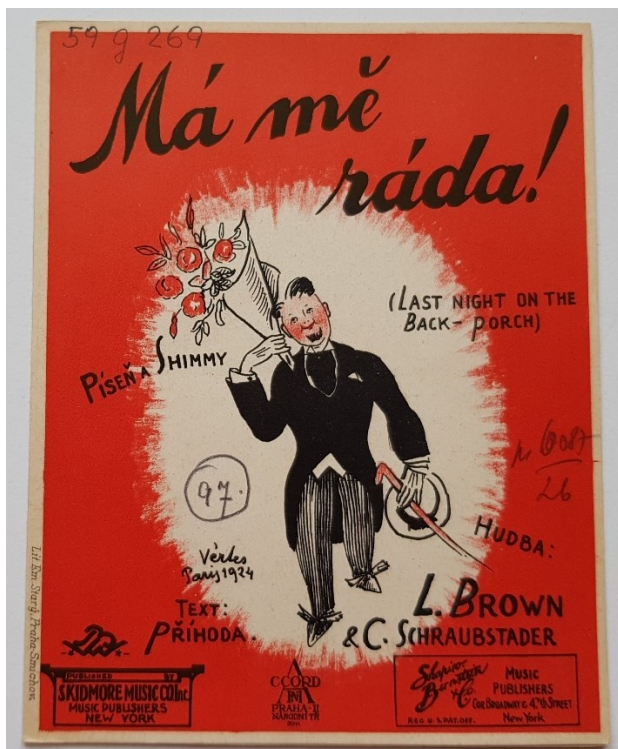 59 g 269
Má mě
ráda!
(LAST NIGHT ON THE
BACK-PORCH)
PÍSEŇ A SHIMMY
97.
26
HUDBA:
Vértes
Paris 1924
TEXT:
PŘÍHODA.
L. BROWN
& C. SCHRAUBSTADER
Lit. Em. Starý, Praha-Smíchov.
PUBLISHED BY
SKIDMORE MUSIC CO Inc.
MUSIC PUBLISHERS
NEW YORK
ACCORD
PRAHA-II
NÁRODNÍ TŘ
Shapiro
Bernstein
& Co.
REG. U.S. PAT. OFF.
MUSIC
PUBLISHERS
COR BROADWAY & 47th STREET
New York